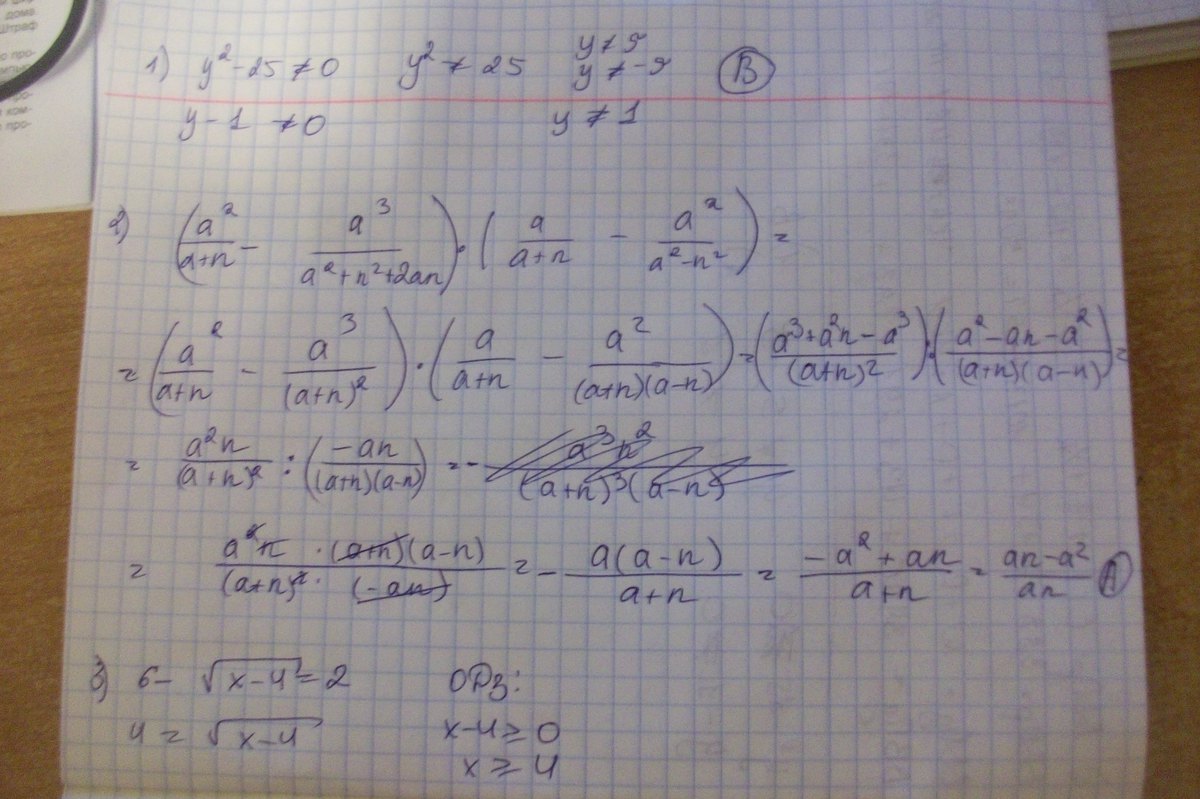 дома
Штраф
1) y² - 25 ≠ 0 y² ≠ 25 y ≠ 5 y ≠ -5 В
y - 1 ≠ 0 y ≠ 1
2) (a²/(a+n) - a³/(a²+n²+2an)) · (a/(a+n) - a²/(a²-n²)) =
= (a²/(a+n) - a³/(a+n)²) · (a/(a+n) - a²/((a+n)(a-n))) = ((a³+a²n-a³)/(a+n)²) : ((a²-an-a²)/((a+n)(a-n))) =
= a²n/(a+n)² : (-an/((a+n)(a-n))) = - a³n²/((a+n)³(a-n))
= (a²n · (a+n)(a-n))/((a+n)² · (-an)) = - a(a-n)/(a+n) = (-a²+an)/(a+n) = (an-a²)/an А
3) 6 - √(x-4) = 2 ОДЗ:
4 = √(x-4) x-4 ≥ 0
x ≥ 4